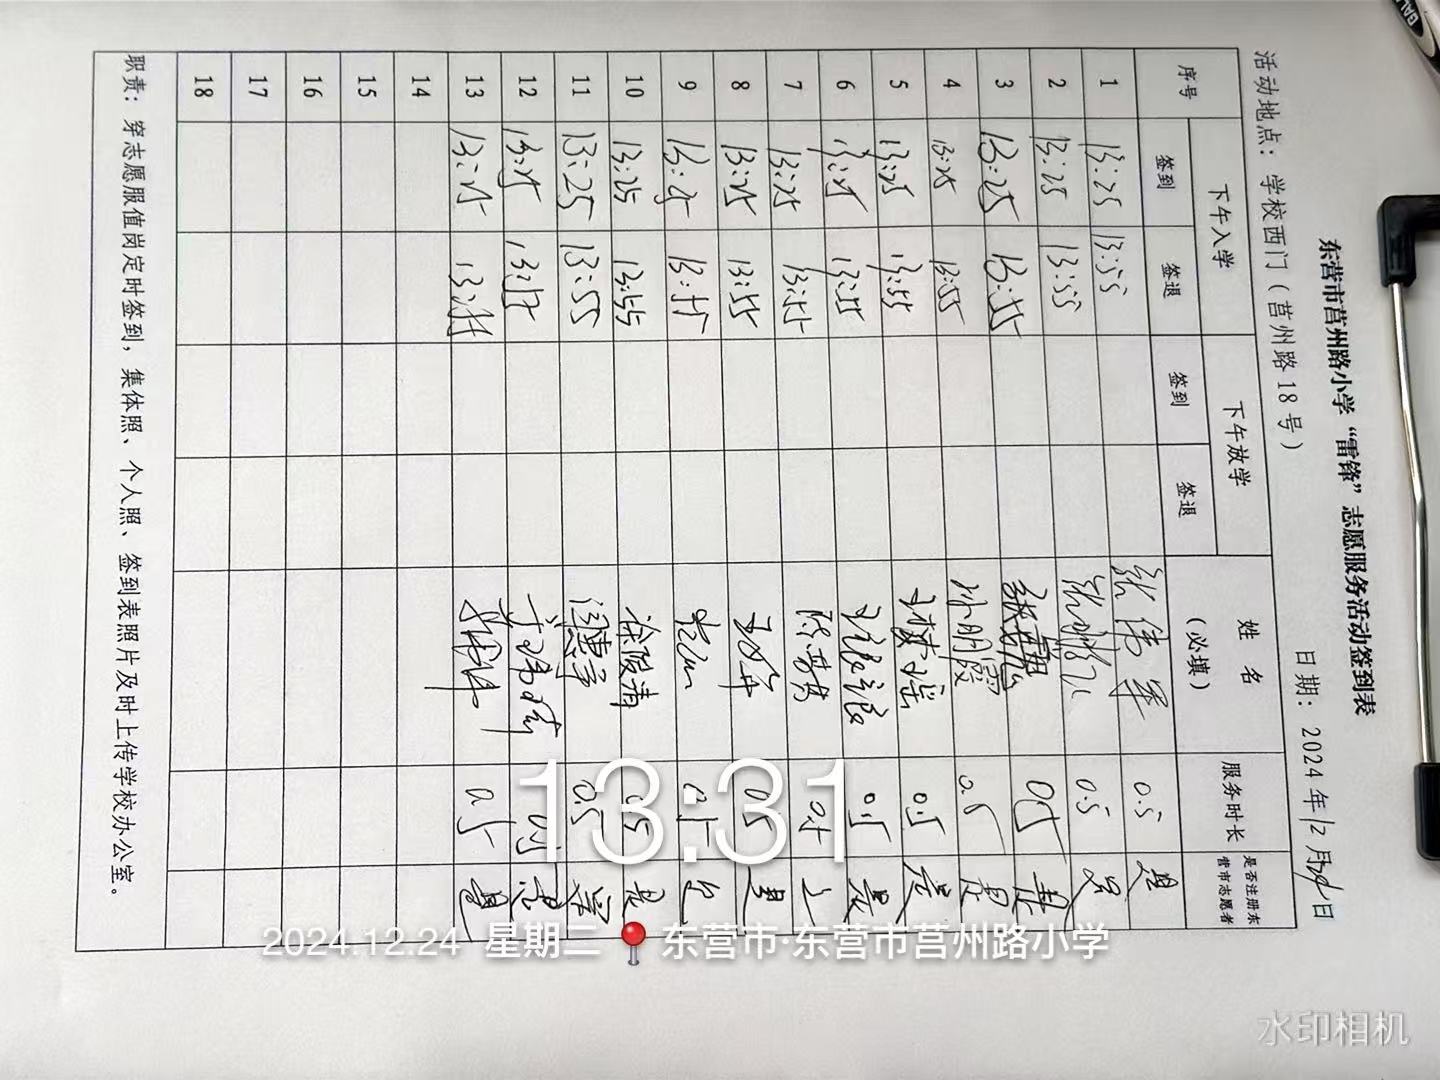 东营市莒州路小学“雷锋”志愿服务活动签到表
活动地点：学校西门（莒州路18号） 日期：2024年12月 日
序号 下午入学 下午放学 姓名（必填） 服务时长 是否注册东营市志愿者
签到 签退 签到 签退
1 13:25 13:55 张伟军 0.5 是
2 13:25 13:55 0.5 是
3 13:25 13:55 0.5 是
4 13:25 13:55 孙明霞 0.5 是
5 13:25 13:55 0.5 是
6 13:25 13:55 0.5 是
7 13:25 13:55 0.5
8 13:25 13:55 0.5 是
9 13:25 13:55 0.5 是
10 13:25 13:55 徐陵清 0.5 是
11 13:25 13:55 闫惠宇 0.5 是
12 13:25 0.5 是
13 13:25 0.5 是
14
15
16
17
18
职责：穿志愿服值岗定时签到，集体照、个人照、签到表照片及时上传学校办公室。
13:31
2024.12.24 星期二 东营市·东营市莒州路小学
水印相机